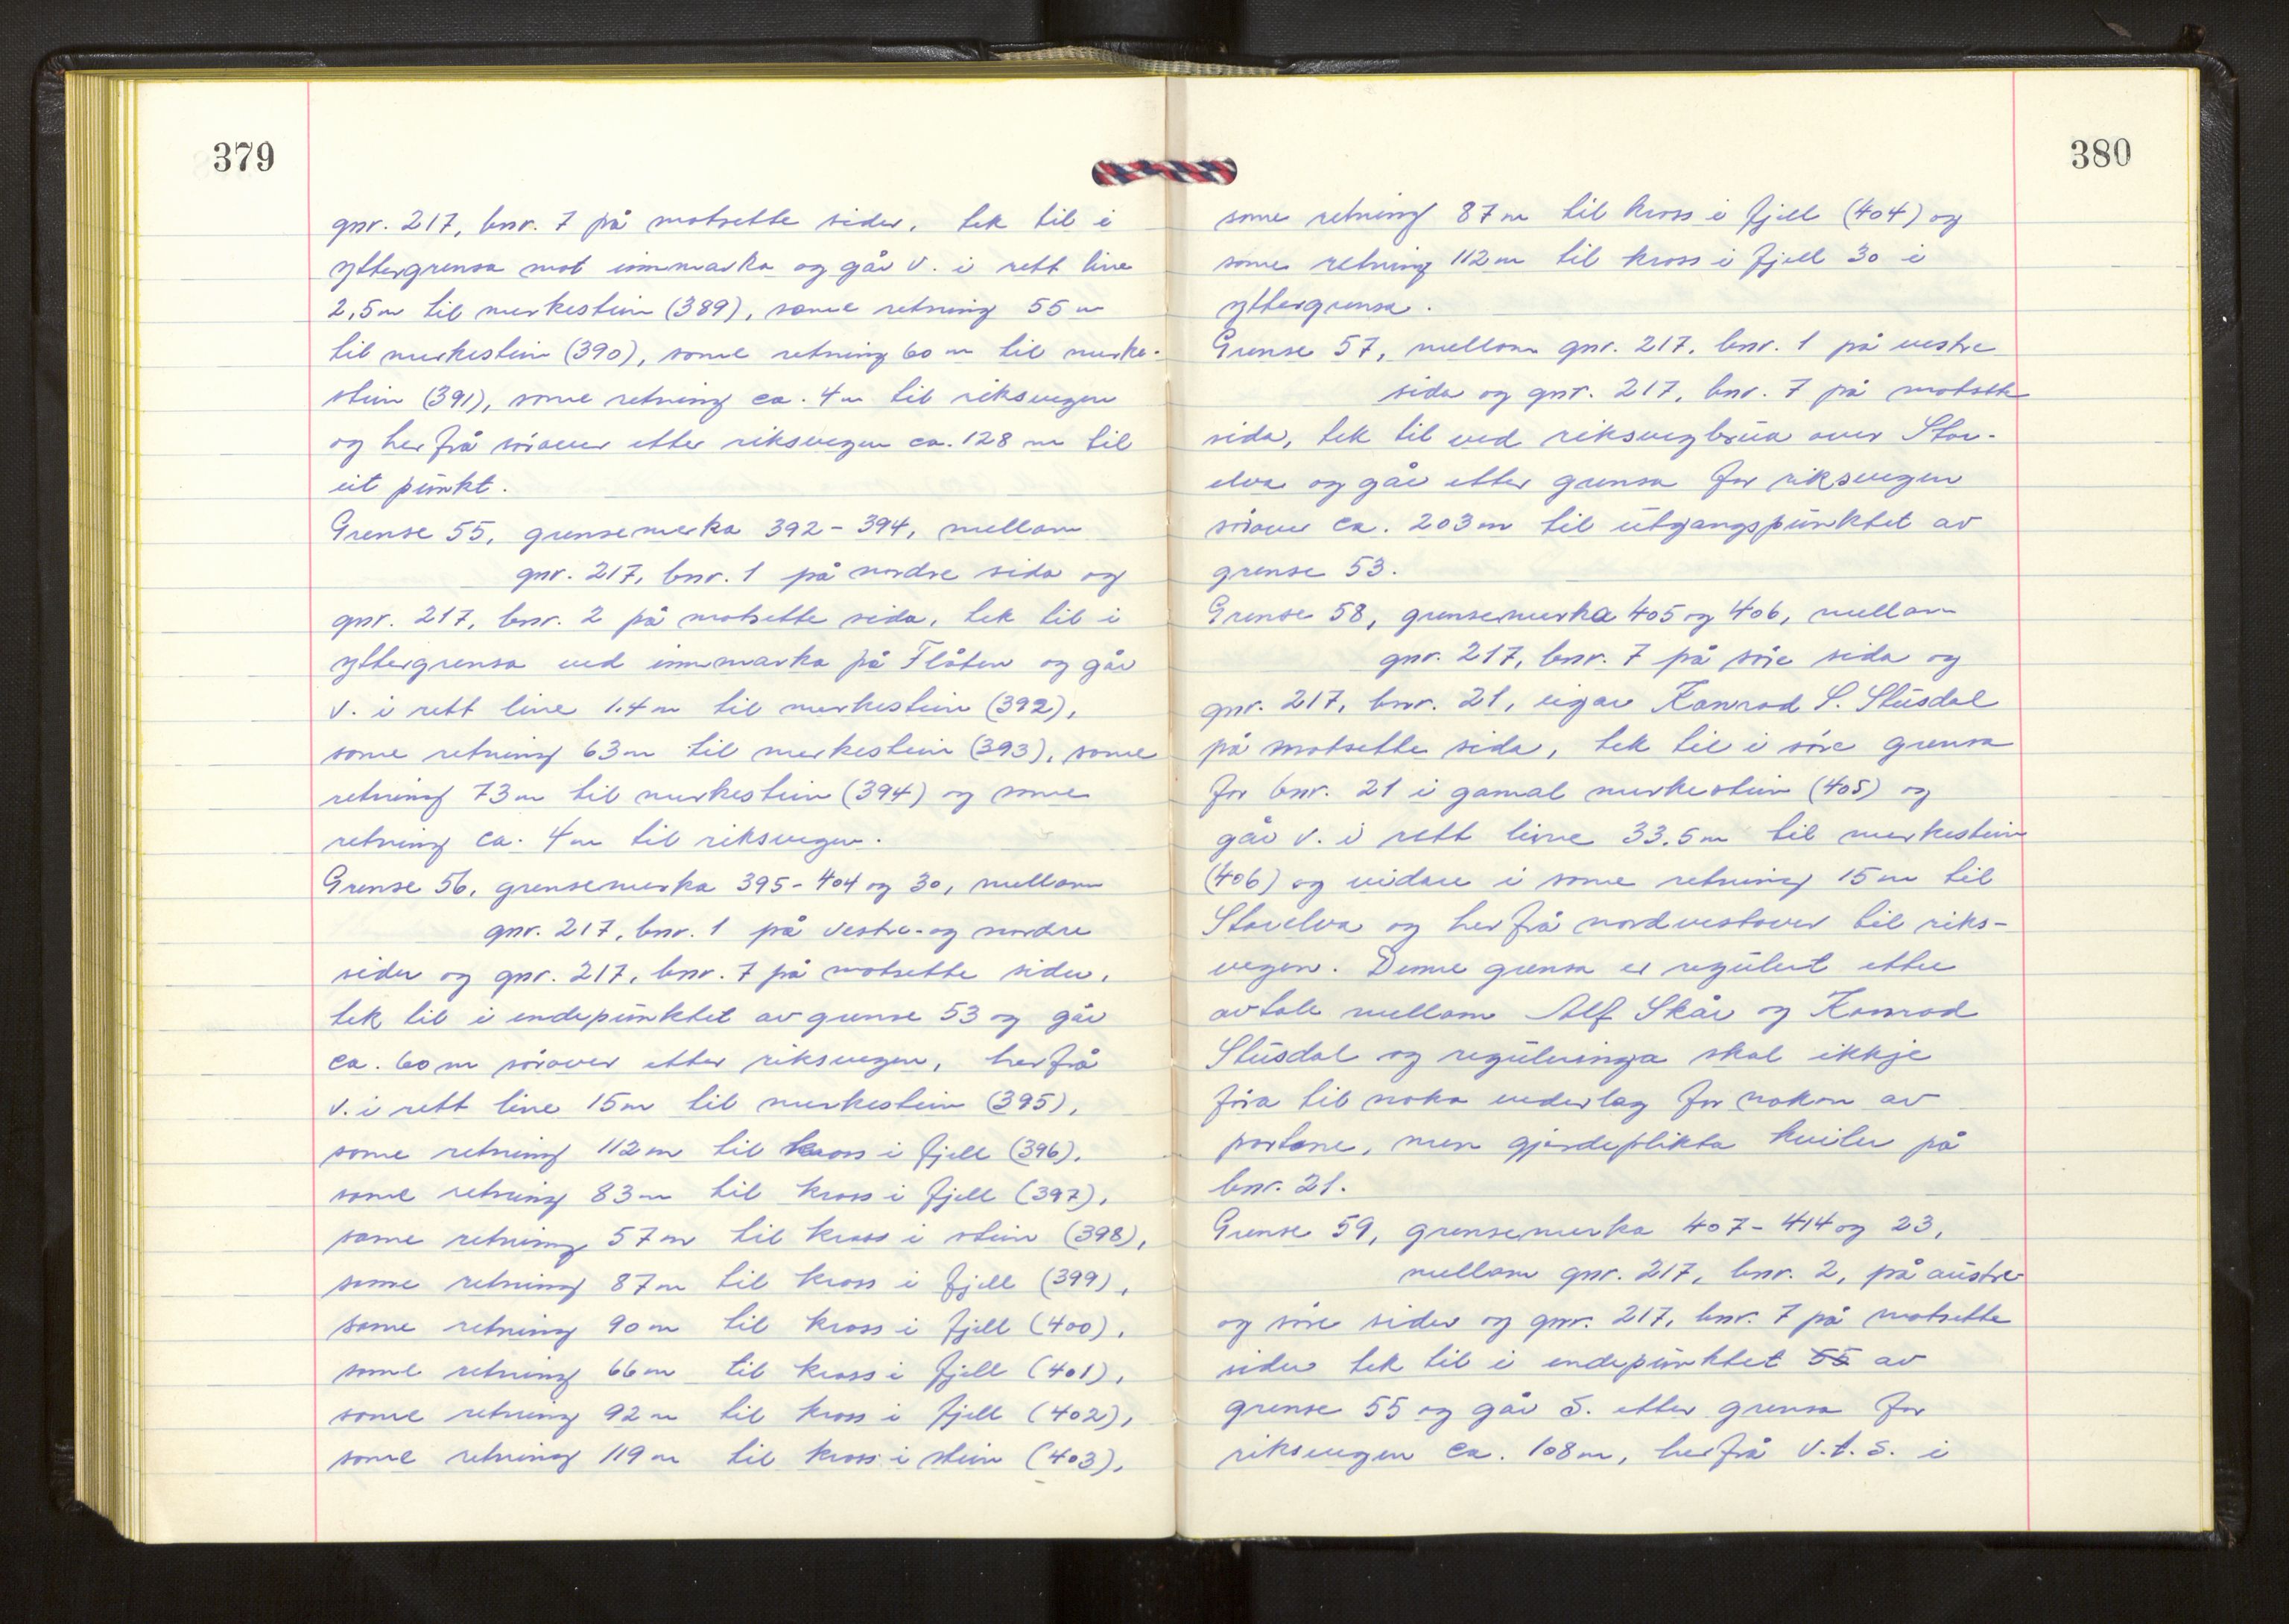 379
gnr. 217, bnr. 7 på motsette sider, tek til i
yttergrensa mot innmarka og går v. i rett line
2,5 m til merkestein (389), same retning 55 m
til merkestein (390), same retning 60 m til merke-
stein (391), same retning ca. 4 m til riksvegen
og herfrå sörover etter riksvegen ca. 128 m til
eit punkt.
Grense 55, grensemerka 392 - 394, mellom
gnr. 217, bnr. 1 på nordre sida og
gnr. 217, bnr. 2 på motsette sida, tek til i
yttergrensa ved innmarka på Flåten og går
v. i rett line 1.4 m til merkestein (392),
same retning 63 m til merkestein (393), same
retning 73 m til merkestein (394) og same
retning ca. 4 m til riksvegen.
Grense 56, grensemerka 395 - 404 og 30, mellom
gnr. 217, bnr. 1 på vestre- og nordre
sider og gnr. 217, bnr. 7 på motsette sider,
tek til i endepunktet av grense 53 og går
ca. 60 m sörover etter riksvegen, herfrå
v. i rett line 15 m til merkestein (395),
same retning 112 m til kross i fjell (396),
same retning 83 m til kross i fjell (397),
same retning 57 m til kross i stein (398),
same retning 87 m til kross i fjell (399),
same retning 90 m til kross i fjell (400),
same retning 66 m til kross i fjell (401),
same retning 92 m til kross i fjell (402),
same retning 119 m til kross i stein (403),
380
same retning 87 m til kross i fjell (404) og
same retning 112 m til kross i fjell 30 i
yttergrensa.
Grense 57, mellom gnr. 217, bnr. 1 på vestre
sida og gnr. 217, bnr. 7 på motsette
sida, tek til ved riksvegbrua over Stor-
elva og går etter grensa for riksvegen
sörover ca. 203 m til utgangspunktet av
grense 53.
Grense 58, grensemerka 405 og 406, mellom
gnr. 217, bnr. 7 på söre sida og
gnr. 217, bnr. 21, eigar Konrad S. Stusdal
på motsette sida, tek til i söre grensa
for bnr. 21 i gamal merkestein (405) og
går v. i rett line 33.5 m til merkestein
(406) og vidare i same retning 15 m til
Storelva og herfrå nordvestover til riks-
vegen. Denne grensa er regulert etter
avtale mellom Alf Skår og Konrad
Stusdal og reguleringa skal ikkje
föra til noko vederlag for nokon av
partane, men gjerdeplikta kviler på
bnr. 21.
Grense 59, grensemerka 407 - 414 og 23,
mellom gnr. 217, bnr. 2, på austre
og söre sider og gnr. 217, bnr. 7 på motsette
sider tek til i endepunktet 55 av
grense 55 og går S. etter grensa for
riksvegen ca. 108 m, herfrå V.t.S. i